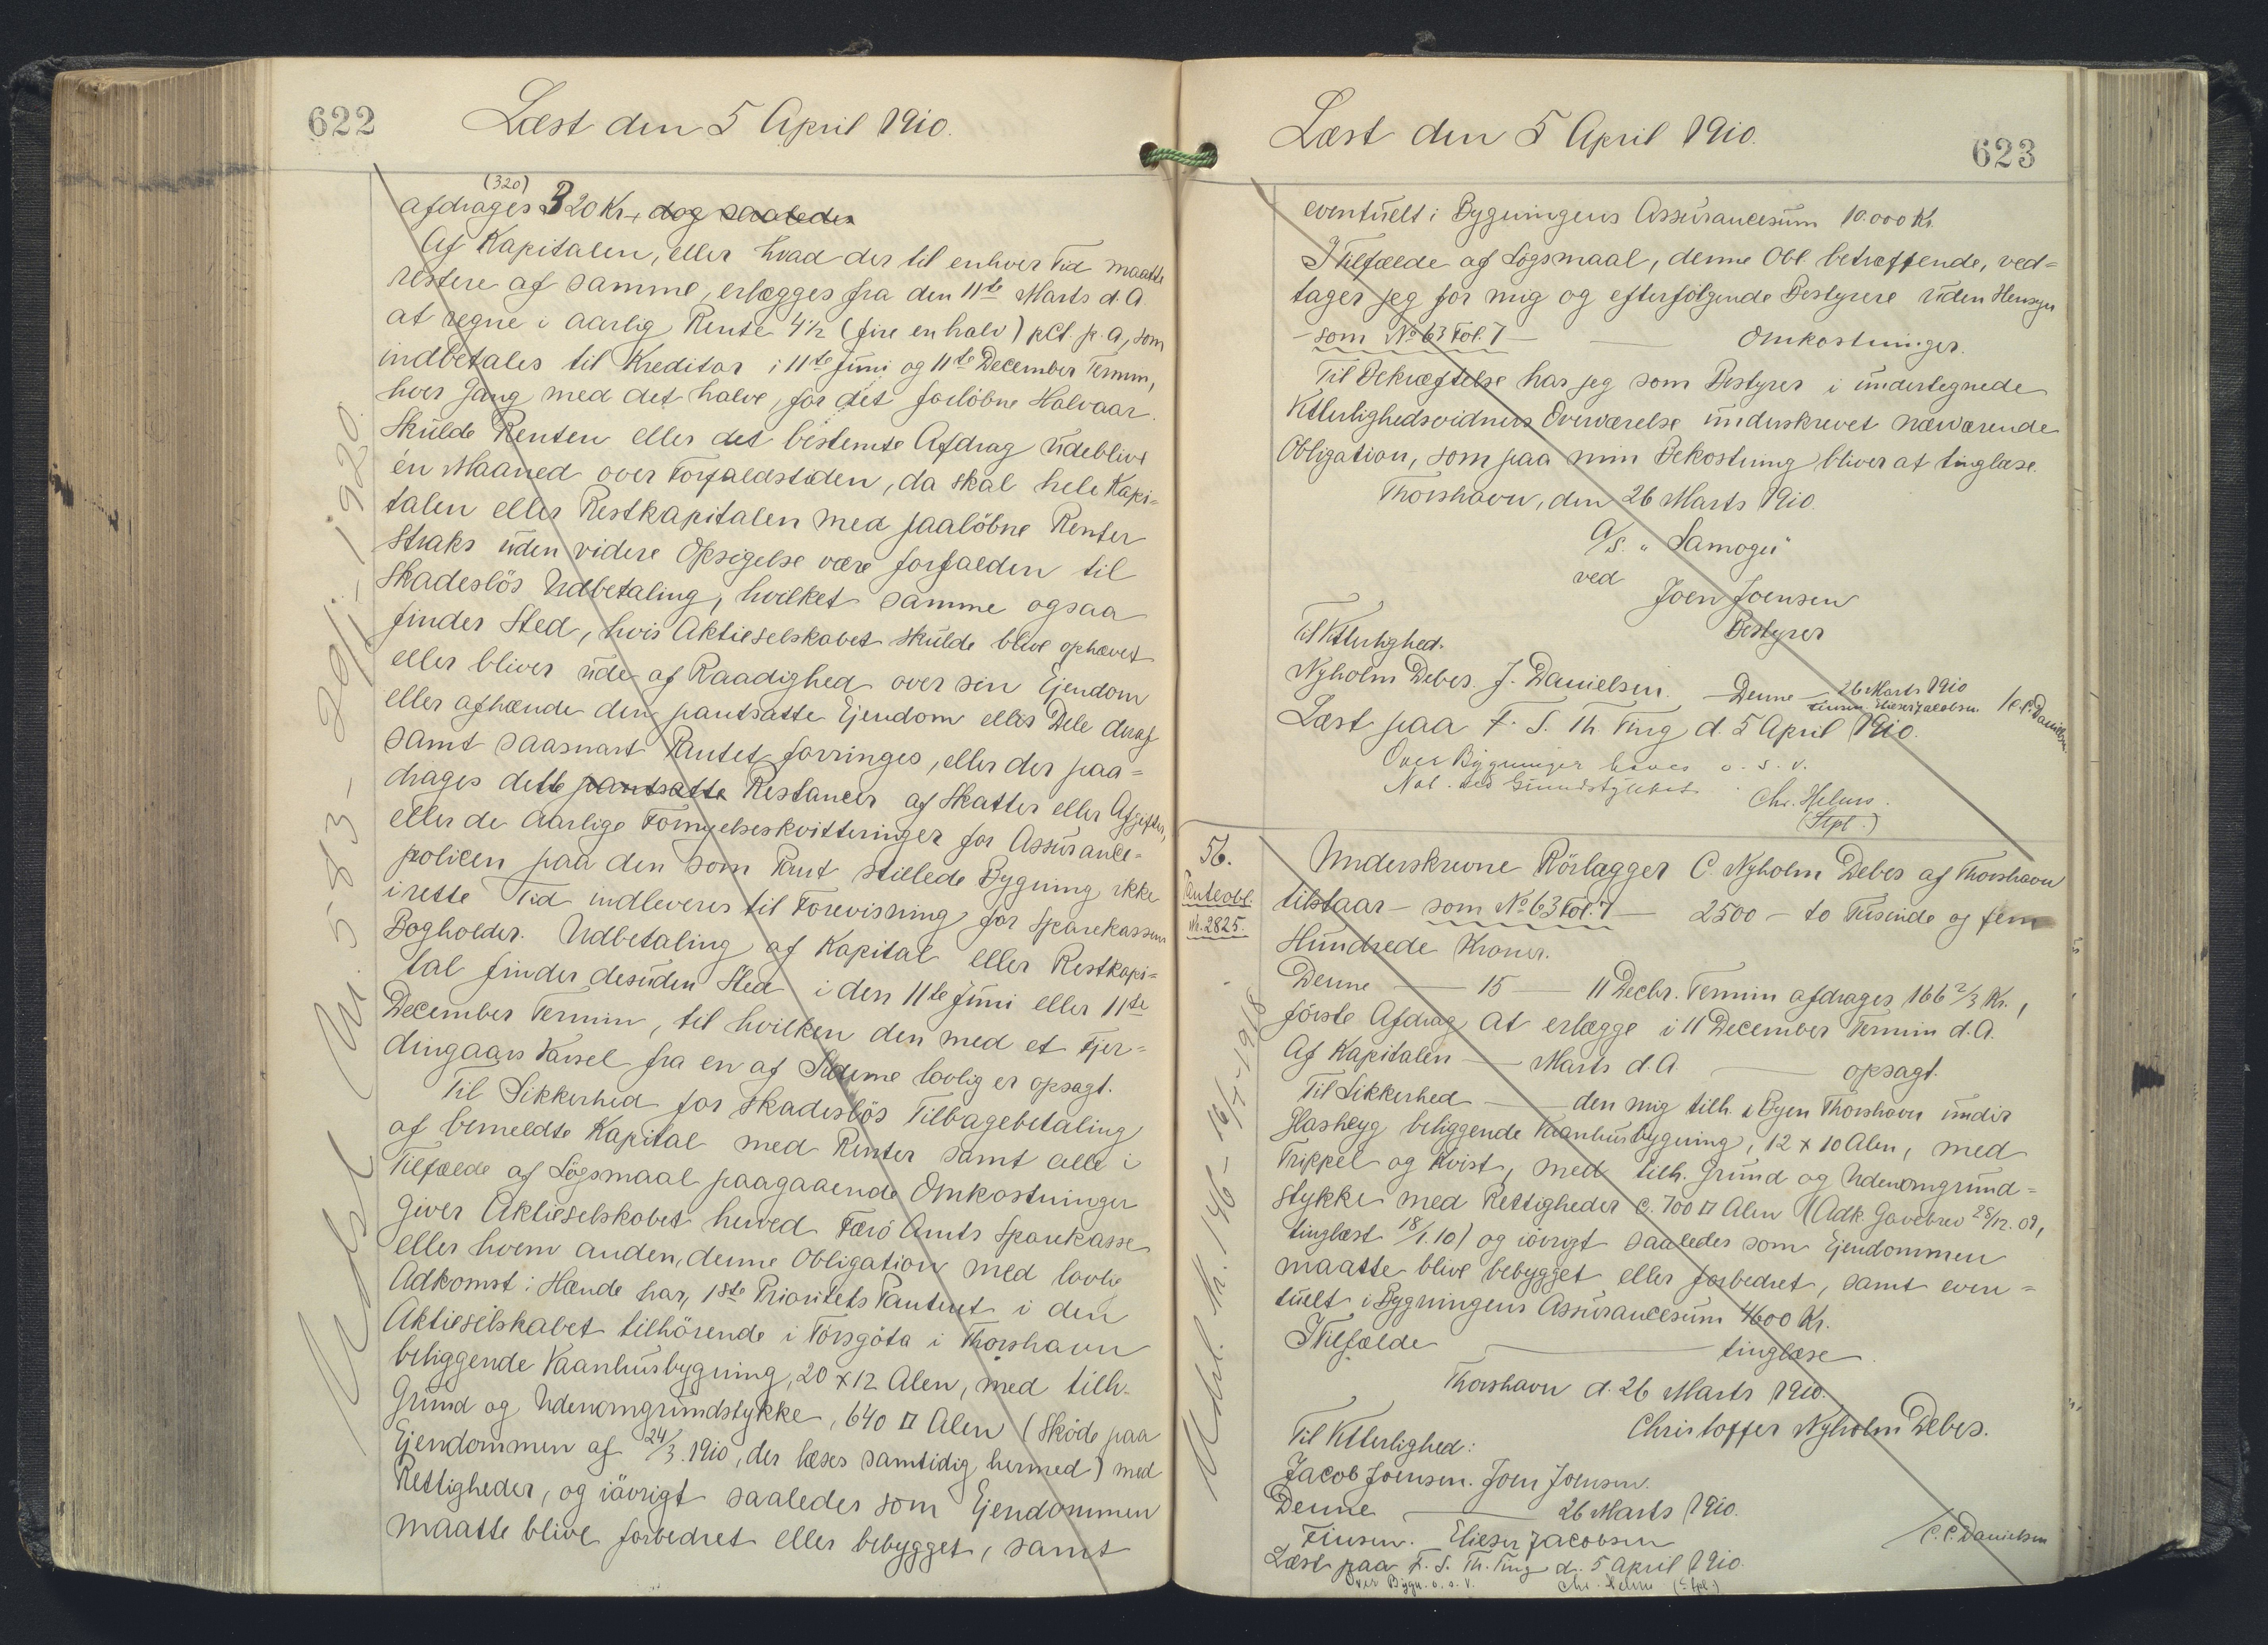 622
Læst den 5 April 1910.
(320)
afdrages 320 Kr., dog saaledes
Af Kapitalen, eller hvad der til enhver Tid maatte
restere af samme, erlægges fra den 11te Marts d. A.
at regne i aarlig Rente 4½ (fire en halv) pCt. p. a, som
indbetales til Kreditor i 11te Juni og 11te December Termin,
hver Gang med det halve, for det forløbne Halvaar.
Skulde Renten eller det bestemte Afdrag udeblive
én Maaned over Forfaldstiden, da skal hele Kapi=
talen eller Restkapitalen med paaløbne Renter
straks uden videre Opsigelse være forfalden til
skadesløs Udbetaling, hvilket samme ogsaa
finder Sted, hvis Aktieselskabet skulde blive ophævet
eller bliver ude af Raadighed over sin Ejendom
eller afhænde den pantsatte Ejendom eller Dele deraf
samt saasnart Pantet forringes, eller der paa=
drages dette pantsatte Restancer af Skatter eller Afgifter,
eller de aarlige Fornyelseskvitteringer for Assurance=
policen paa den som Pant stillede Bygning ikke
i rette Tid indleveres til Forevisning for Sparekassens
Bogholder. Udbetaling af Kapital eller Restkapi=
tal finder desuden Sted i den 11te Juni eller 11te
December Termin, til hvilken den med et Fjer=
dingaars Varsel fra en af Siderne lovlig er opsagt.
Til Sikkerhed for skadesløs Tilbagebetaling
af bemeldte Kapital med Renter samt alle i
Tilfælde af Søgsmaal paagaaende Omkostninger
giver Aktieselskabet herved Færø Amts Sparekasse
eller hvem anden, denne Obligation med lovlig
Adkomst i Hænde har, 1ste Prioritets Panteret i den
Aktieselskabet tilhørende i Tórsgøta i Thorshavn
beliggende Vaanhusbygning, 20 x 12 Alen, med tilh.
Grund og Udenomgrundstykke, 640 □ Alen (Skøde paa
Ejendommen af 24/3. 1910, der læses samtidig hermed) med
Rettigheder, og iøvrigt saaledes som Ejendommen
maatte blive forbedret eller bebygget, samt
Læst den 5 April 1910.
623
eventuelt i Bygningens Assurancesum 10.000 Kr.
I Tilfælde af Søgsmaal, denne Obl. betræffende, ved=
tager jeg for mig og efterfølgende Bestyrere uden Hensyn
— som No 63 Fol. 7 — Omkostninger.
Til Bekræftelse har jeg som Bestyrer i undertegnede
Vitterlighedsvidners Overværelse underskrevet nærværende
Obligation, som paa min Bekostning bliver at tinglæse.
Thorshavn, den 26 Marts 1910.
A/S. "Samogn"
ved
Joen Joensen
Bestyrer
Til Vitterlighed:
Nyholm Debes. J. Danielsen. — Denne — 26 Marts 1910
Finsen. Elieser Jacobsen / C. C. Danielsen.
Læst paa F. S. Th. Ting d. 5 April 1910.
Over Bygninger haves o. s. v.
Chr. Helms.
(Stpl.)
56.
Panteobl.
Nr. 2825.
Underskrevne Rørlægger C. Nyholm Debes af Thorshavn
tilstaar — som No 63 Fol. 7 — 2500 — to Tusinde og fem
Hundrede Kroner.
Denne — 15 — 11 Decbr. Termin afdrages 166 2/3 Kr.,
første Afdrag at erlægge i 11 December Termin d. A.
Af Kapitalen — Marts d. A. — opsagt.
Til Sikkerhed — den mig tilh. i Byen Thorshavn under
beliggende Vaanhusbygning, 12 x 10 Alen, med
Trippel og Kvist, med tilh. Grund og Udenomgrund=
stykke med Rettigheder c. 700 □ Alen (Adk. Gavebrev 28/12. 09,
tinglæst 18/1. 10) og iøvrigt saaledes som Ejendommen
maatte blive bebygget eller forbedret, samt even=
tuelt i Bygningens Assurancesum 4600 Kr.
I Tilfælde — tinglæse.
Thorshavn d. 26 Marts 1910.
Christoffer Nyholm Debes.
Til Vitterlighed:
Jacob Joensen. Joen Joensen.
Denne — 26 Marts 1910.
Finsen. Elieser Jacobsen / C. C. Danielsen
Læst paa F. S. Th. Ting d. 5 April 1910.
Over Bygn. o. s. v. Chr. Helms (Stpl.)
Udsl. Nr. 583 — 29/1 — 1920.
Udsl. Nr. 146 — 16/7 - 1918